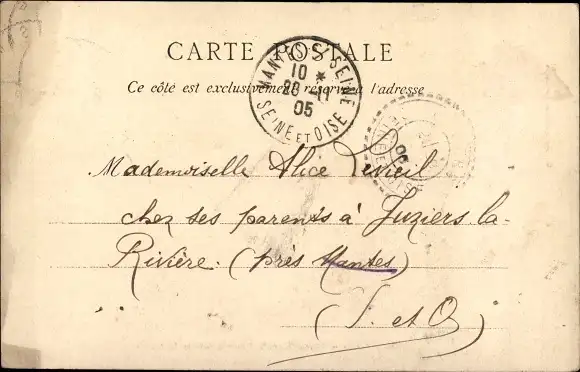 CARTE POSTALE
Ce côté est exclusivement réservé à l'adresse
MANTES S. SEINE
10 *
28 - 11
05
SEINE ET OISE
05
Mademoiselle Alice Levieil
chez ses parents à Juziers la-
Rivière. (près Mantes)
(S. et O.)